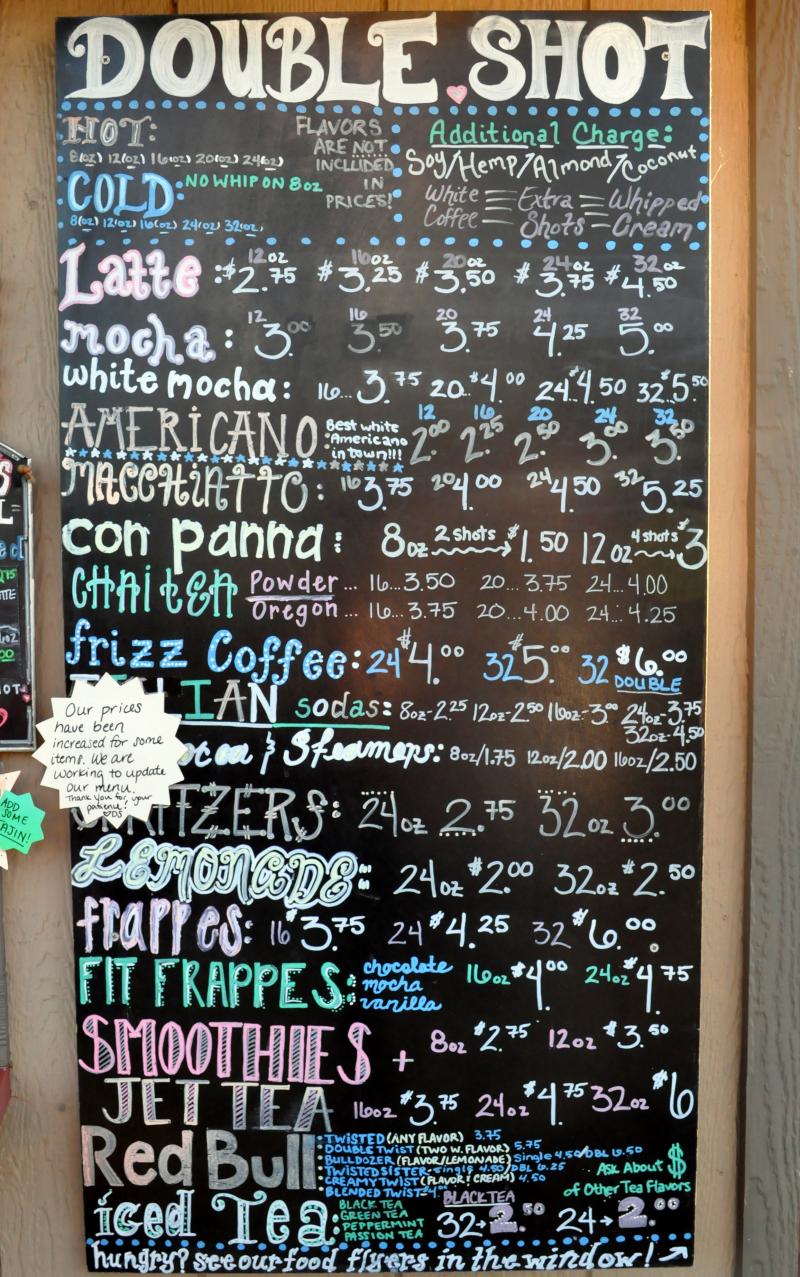 DOUBLE SHOT
HOT:
8(oz) 12(oz) 16(oz) 20(oz) 24(oz)
COLD: NO WHIP ON 8oz
8(oz) 12(oz) 16(oz) 24(oz) 32(oz)
FLAVORS
ARE NOT
INCLUDED
IN
PRICES!
Additional Charge:
Soy/Hemp/Almond/Coconut
White Coffee Extra Shots Whipped Cream
Latte: 12oz $2.75 16oz $3.25 20oz $3.50 24oz $3.75 32oz $4.50
mocha: 12 3.00 16 3.50 20 3.75 24 4.25 32 5.00
white mocha: 16...3.75 20..$4.00 24..$4.50 32.$5.50
AMERICANO: Best white Americano in town!!! 12 2.00 16 2.25 20 2.50 24 3.00 32 3.50
MACCHIATTO: 16 3.75 20 4.00 24 4.50 32 5.25
con panna: 8oz 2 shots $1.50 12oz 4 shots $3
CHAI tEA Powder... 16...3.50 20...3.75 24...4.00
Oregon... 16...3.75 20...4.00 24...4.25
frizz Coffee: 24 $4.00 32 $5.00 32 $6.00
DOUBLE
IAN sodas: 8oz-2.25 12oz-2.50 16oz-3.00 24oz-3.75
32oz-4.50
& Steamers: 8oz/1.75 12oz/2.00 16oz/2.50
Our prices
have been
increased for some
items. We are
working to update
our menu.
Thank you for your
patience!
DS
TZERS: 24oz 2.75 32oz 3.00
LEMONADE: 24oz $2.00 32oz $2.50
frappes: 16 $3.75 24 $4.25 32 $6.00
FIT FRAPPES: chocolate mocha vanilla 16oz $4.00 24oz $4.75
SMOOTHIES + 8oz $2.75 12oz $3.50
JET TEA 16oz $3.75 24oz $4.75 32oz $6
Red Bull: TWISTED (ANY FLAVOR) 3.75
DOUBLE TWIST (TWO W. FLAVOR) 5.75
BULLDOZER (FLAVOR/LEMONADE) Single 4.50/DBL 6.50
TWISTED SISTER-single 4.50/DBL 6.25
CREAMY TWIST (FLAVOR & CREAM) 4.50
BLENDED TWIST
Ask About $
of Other Tea Flavors
iced Tea: BLACK TEA
GREEN TEA
PEPPERMINT
PASSION TEA
BLACK TEA
32→2.50 24→2.00
hungry? see our food flyers in the window!
ADD
SOME
TAJIN!